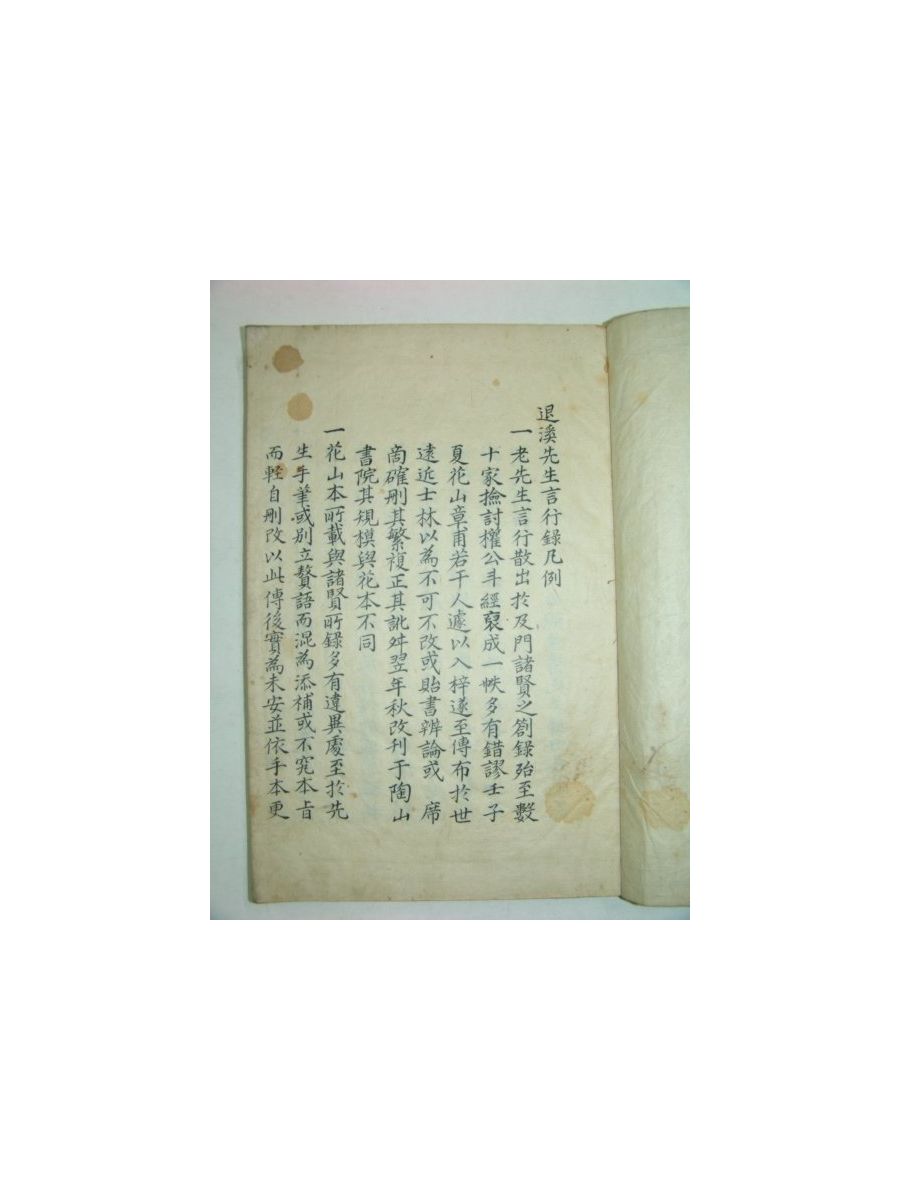 退溪先生言行錄凡例
一老先生言行散出於及門諸賢之劄錄殆至數
十家撿討權公斗經裒成一帙多有錯謬壬子
夏花山章甫若干人遽以入梓遂至傳布於世
遠近士林以為不可不改或貽書辨論或 席
啇確刪其繁複正其訛舛翌年秋改刊于陶山
書院其規模與花本不同
一花山本所載與諸賢所錄多有違異處至於先
生手筆或別立贅語而混為添補或不究本旨
而輕自刪改以此傳後實為未安並依手本更